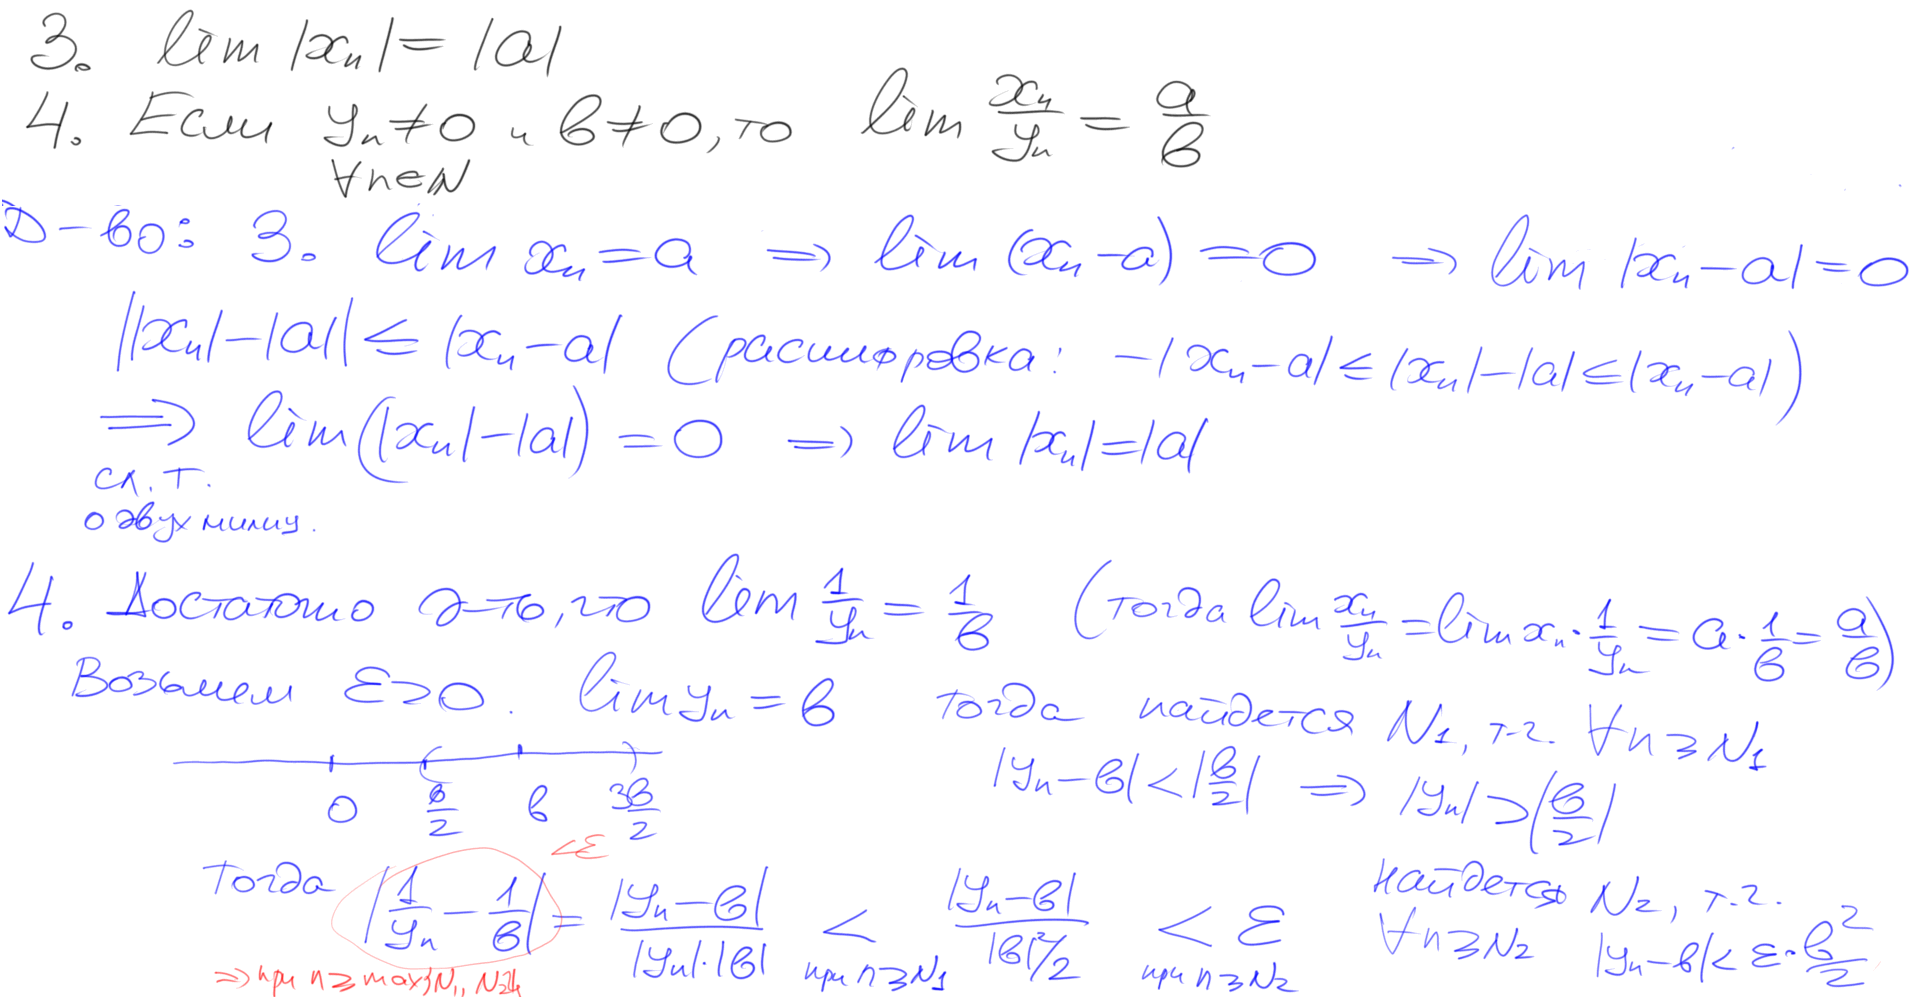 3. lim |xₙ| = |a|
4. Если yₙ ≠ 0 и b ≠ 0, то lim xₙ/yₙ = a/b
∀n∈ℕ
Д-во: 3. lim xₙ = a ⇒ lim (xₙ - a) = 0 ⇒ lim |xₙ - a| = 0
||xₙ| - |a|| ≤ |xₙ - a| (расшифровка: -|xₙ - a| ≤ |xₙ| - |a| ≤ |xₙ - a|)
⇒ lim (|xₙ| - |a|) = 0 ⇒ lim |xₙ| = |a|
сл. т.
о двух милиц.
4. Достаточно д-ть, что lim 1/yₙ = 1/b (тогда lim xₙ/yₙ = lim xₙ · 1/yₙ = a · 1/b = a/b)
Возьмем ε > 0. lim yₙ = b тогда найдется N₁, т.ч. ∀n ≥ N₁
|yₙ - b| < |b/2| ⇒ |yₙ| > |b/2|
0 b/2 b 3b/2
< ε
Тогда |1/yₙ - 1/b| = |yₙ - b| / (|yₙ|·|b|) < |yₙ - b| / (|b|²/2) < ε
при n ≥ N₁ при n ≥ N₂
⇒ при n ≥ max{N₁, N₂}
найдется N₂, т.ч.
∀n ≥ N₂ |yₙ - b| < ε · b²/2